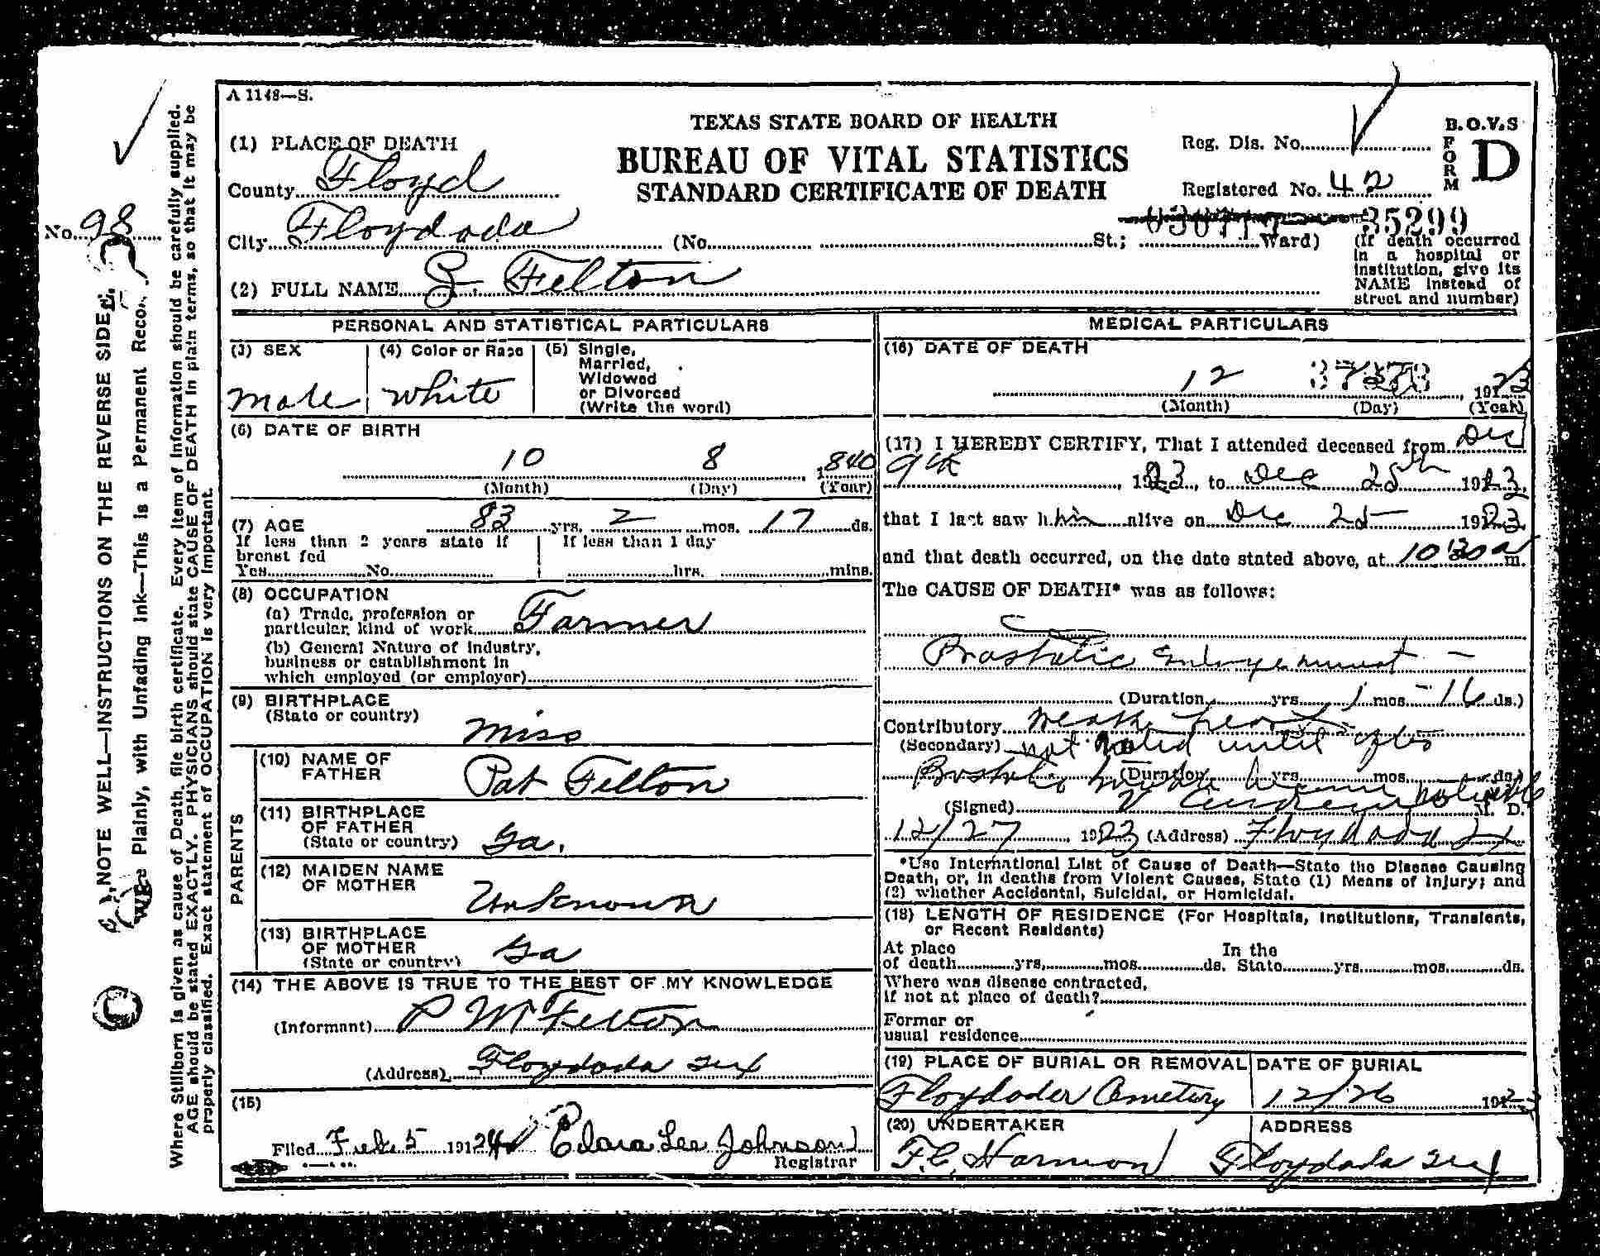 A 1148—S.
TEXAS STATE BOARD OF HEALTH
BUREAU OF VITAL STATISTICS
STANDARD CERTIFICATE OF DEATH
Reg. Dis. No.
Registered No. 42
B.O.V.S
FORM D
35299
(1) PLACE OF DEATH
County Floyd
No. 98
City Floydada (No. St.; Ward)
(If death occurred in a hospital or institution, give its NAME instead of street and number)
(2) FULL NAME Felton
PERSONAL AND STATISTICAL PARTICULARS
(3) SEX
Male
(4) Color or Race
White
(5) Single, Married, Widowed or Divorced (Write the word)
(6) DATE OF BIRTH
10 8 1840
(Month) (Day) (Year)
(7) AGE 83 yrs. 2 mos. 17 ds.
If less than 2 years state if breast fed
Yes No
If less than 1 day
hrs. mins.
(8) OCCUPATION
(a) Trade, profession or
particular, kind of work Farmer
(b) General Nature of Industry,
business or establishment in
which employed (or employer)
(9) BIRTHPLACE
(State or country)
Miss
PARENTS
(10) NAME OF FATHER
Pat Felton
(11) BIRTHPLACE OF FATHER
(State or country) Ga.
(12) MAIDEN NAME OF MOTHER
Unknown
(13) BIRTHPLACE OF MOTHER
(State or country) Ga
(14) THE ABOVE IS TRUE TO THE BEST OF MY KNOWLEDGE
(Informant) P W Felton
(Address) Floydada Tex
(15)
Filed Feb 5 1924 Clara Lee Johnson
Registrar
MEDICAL PARTICULARS
(16) DATE OF DEATH
12 1923
(Month) (Day) (Year)
(17) I HEREBY CERTIFY, That I attended deceased from Dec
9th, 1923, to Dec 25th 1923,
that I last saw him alive on Dec 25 1923
and that death occurred, on the date stated above, at 10:30 a m.
The CAUSE OF DEATH* was as follows:
Prostatic Enlargement —
(Duration yrs. 1 mos. 16 ds.)
Contributory Weak heart
(Secondary) not noted until after
(Duration yrs. mos. ds.)
(Signed) M. D.
12/27 1923 (Address) Floydada
*Use International List of Cause of Death—State the Disease Causing
Death, or, in deaths from Violent Causes, State (1) Means of Injury; and
(2) whether Accidental, Suicidal, or Homicidal.
(18) LENGTH OF RESIDENCE (For Hospitals, Institutions, Transients,
or Recent Residents)
At place
of death yrs. mos. ds. In the State yrs. mos. ds.
Where was disease contracted,
if not at place of death?
Former or
usual residence
(19) PLACE OF BURIAL OR REMOVAL
Floydader Cemetery
DATE OF BURIAL
12/26 1923
(20) UNDERTAKER
F.C. Harmon
ADDRESS
Floydada Tex
NOTE WELL—INSTRUCTIONS ON THE REVERSE SIDE.
Plainly, with Unfading Ink—This is a Permanent Record.
Where Stillborn is given as cause of Death, file birth certificate. Every item of information should be carefully supplied.
AGE should be stated EXACTLY. PHYSICIANS should state CAUSE OF DEATH in plain terms, so that it may be
properly classified. Exact statement of OCCUPATION is very important.